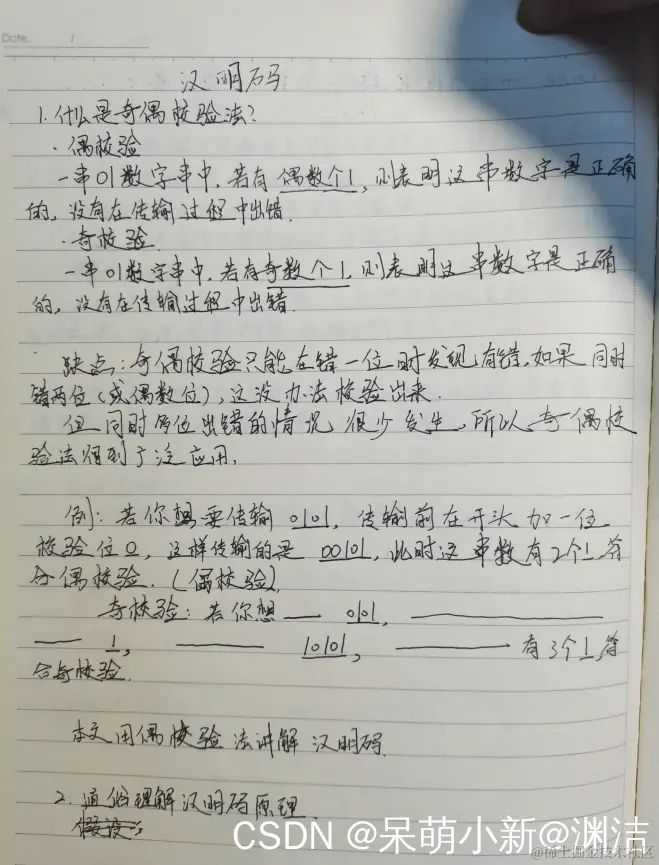 Date. /
汉明码
1. 什么是奇偶校验法?
· 偶校验
一串01数字串中,若有偶数个1,则表明这串数字是正确
的,没有在传输过程中出错.
· 奇校验.
一串01数字串中,若有奇数个1,则表明这串数字是正确
的,没有在传输过程中出错.
缺点:奇偶校验只能在错一位时发现有错,如果同时
错两位(或偶数位),这没办法校验出来.
但同时多位出错的情况很少发生,所以奇偶校
验法得到广泛应用.
例:若你想要传输 0101,传输前在开头加一位
校验位0,这样传输的是 00101,此时这串数有2个1符
合偶校验.(偶校验).
奇校验:若你想—— 0101, ————
—— 1, —— 10101, —— 有3个1符
合奇校验.
本文用偶校验法讲解汉明码.
2. 通俗理解汉明码原理.
假设:
CSDN @呆萌小新@渊洁
@稀土掘金技术社区